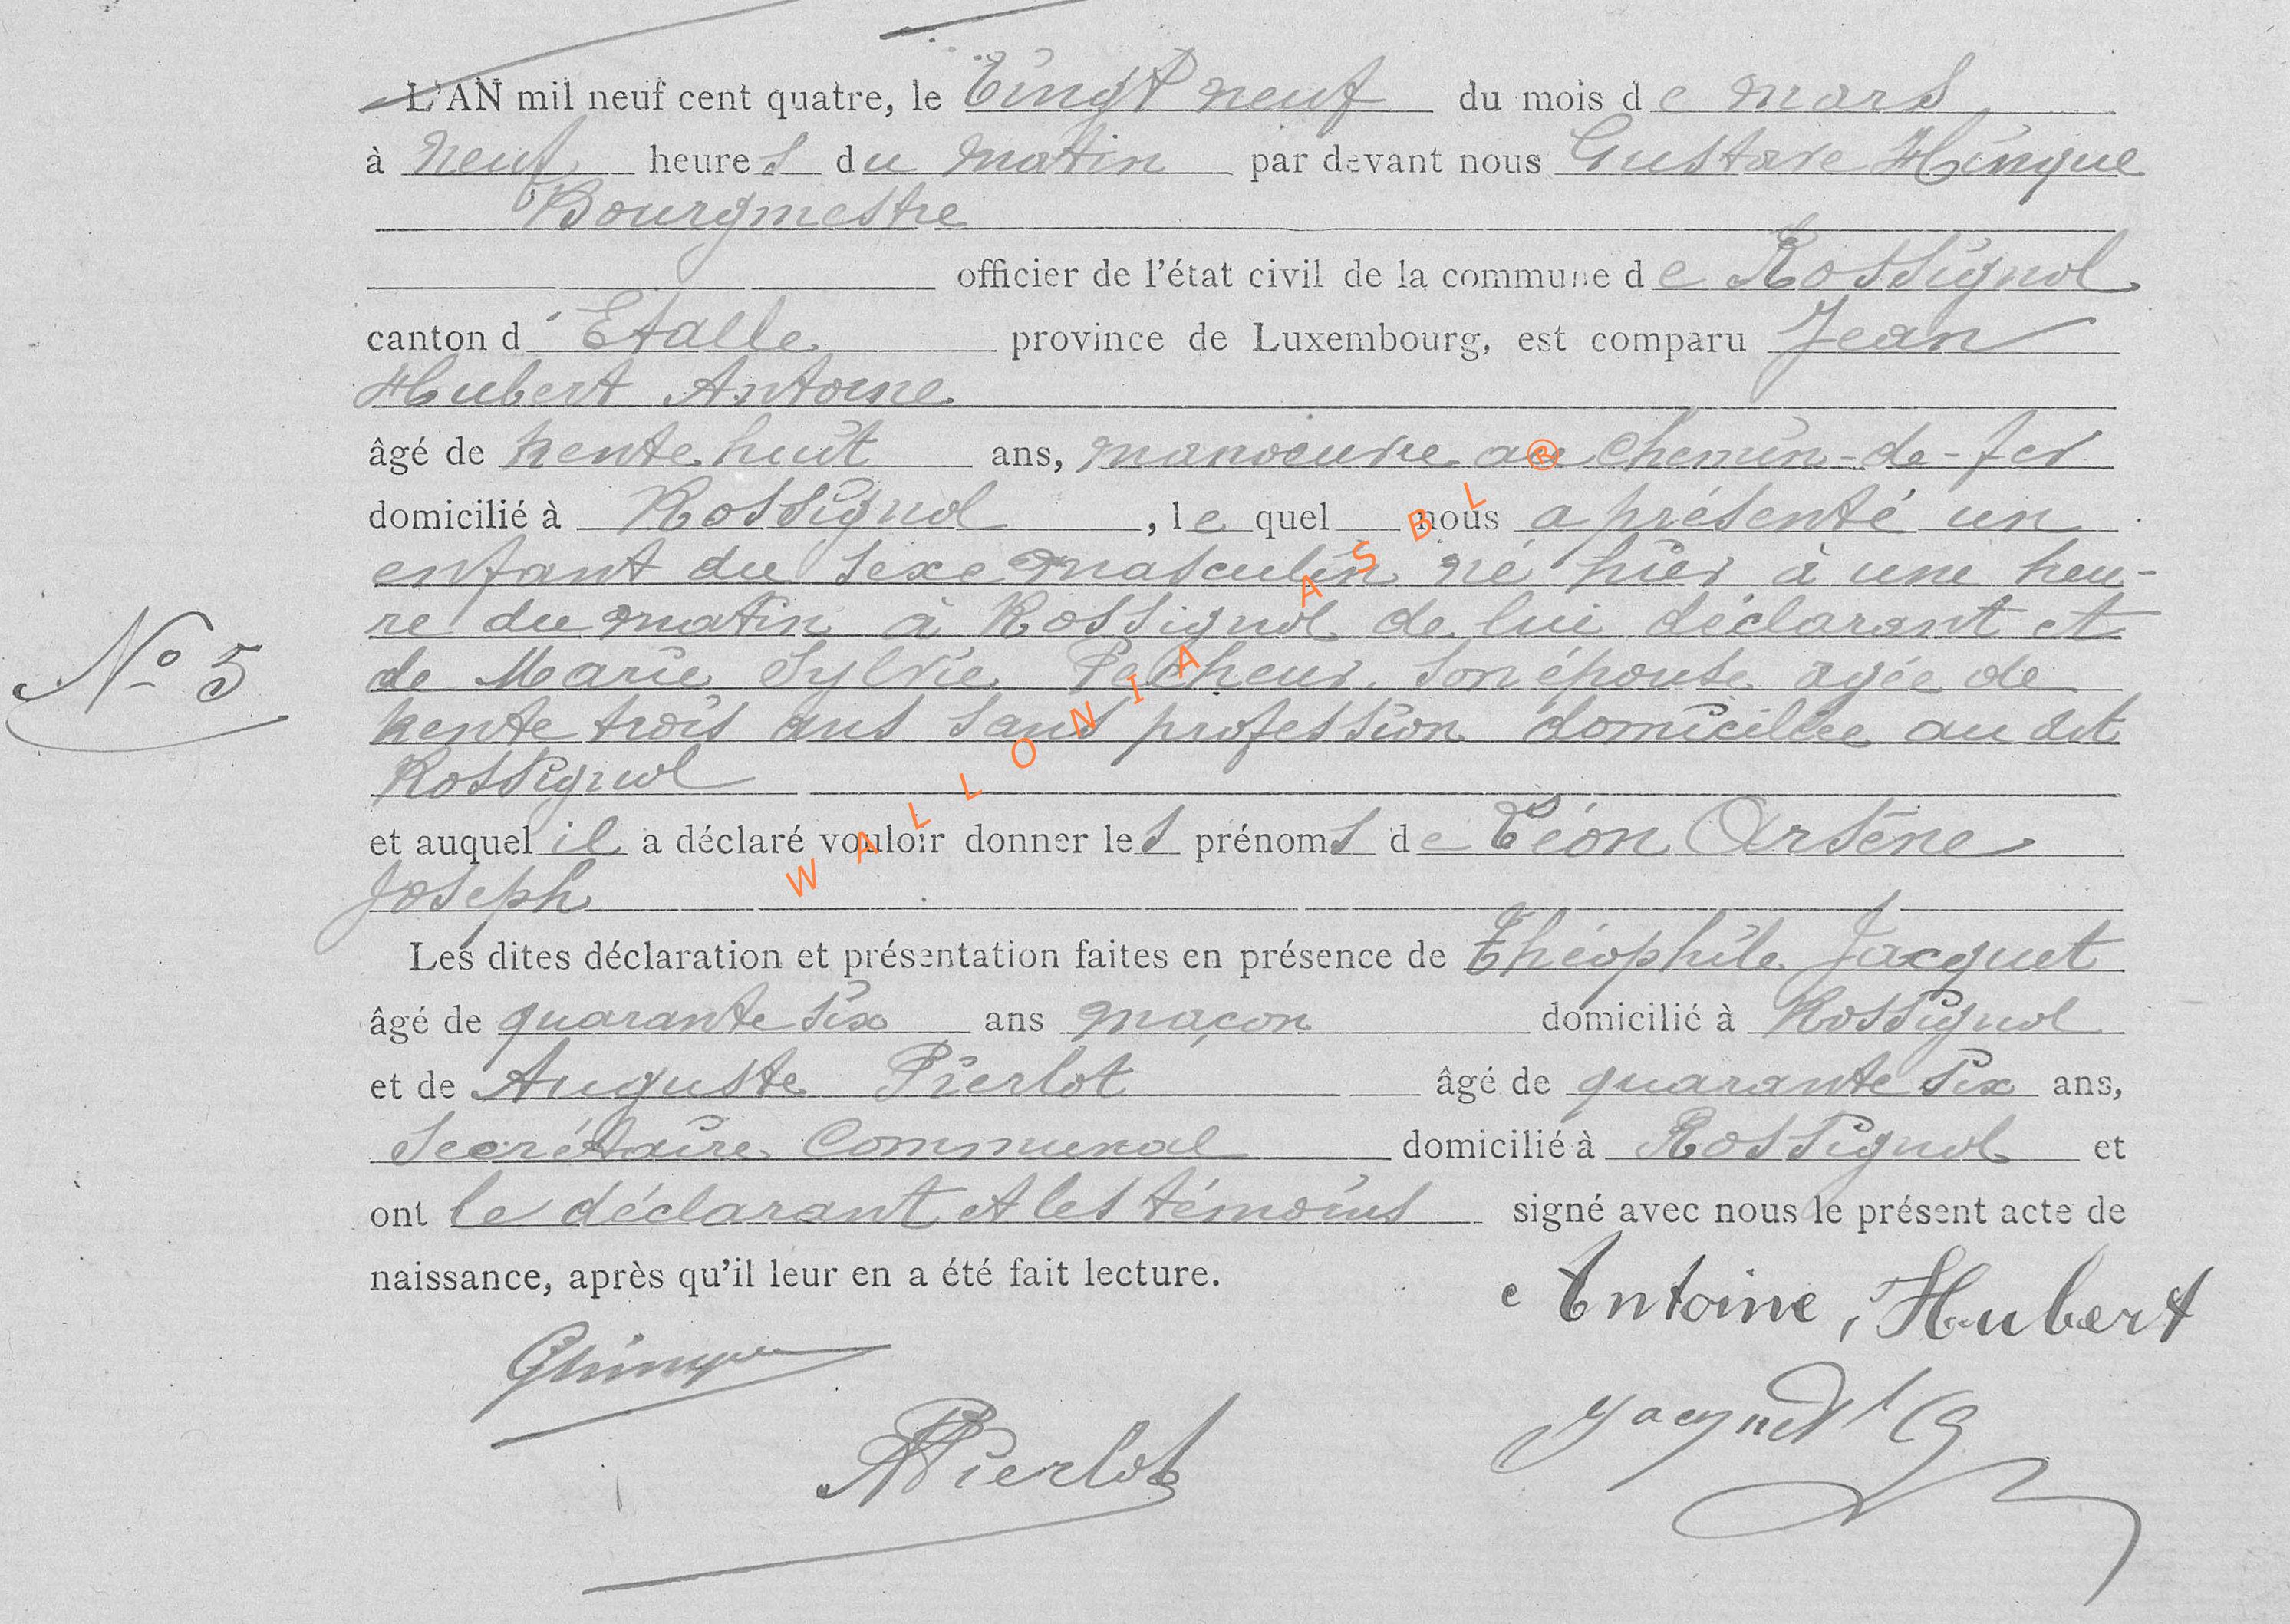 L'AN mil neuf cent quatre, le Vingt neuf du mois de mars
à neuf heures du matin par devant nous Gustave Hinque
Bourgmestre
officier de l'état civil de la commune de Rossignol
canton d'Etalle province de Luxembourg, est comparu Jean
Hubert Antoine
âgé de trente huit ans, manoeuvre au chemin-de-fer
domicilié à Rossignol, le quel nous a présenté un
enfant du sexe masculin né hier à une heu-
re du matin à Rossignol de lui déclarant et
de Marie Sylvie Pecheur son épouse agée de
trente trois ans sans profession domiciliée au dit
Rossignol
N° 5
et auquel il a déclaré vouloir donner les prénoms de Léon Arsène
Joseph
Les dites déclaration et présentation faites en présence de Théophile Jacquet
âgé de quarante six ans maçon domicilié à Rossignol
et de Auguste Pierlot âgé de quarante six ans,
Secrétaire Communal domicilié à Rossignol et
ont le déclarant et les témoins signé avec nous le présent acte de
naissance, après qu'il leur en a été fait lecture.
Antoine, Hubert
GHinque
Jacquet
APierlot
WALLONIA ASBL ®